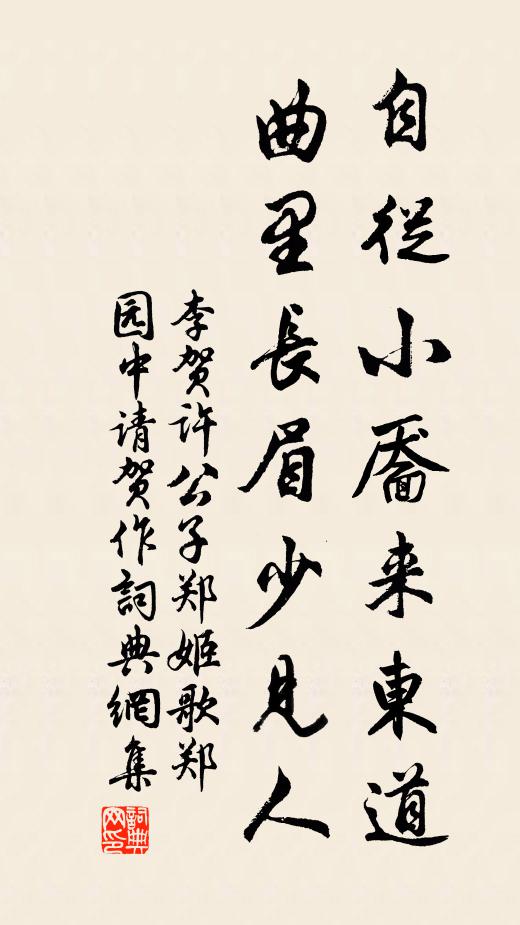 自從小靨来東道
曲里長眉少見人
李贺许公子郑姬歌郑
园中请贺作詞典網集
詞典
网印